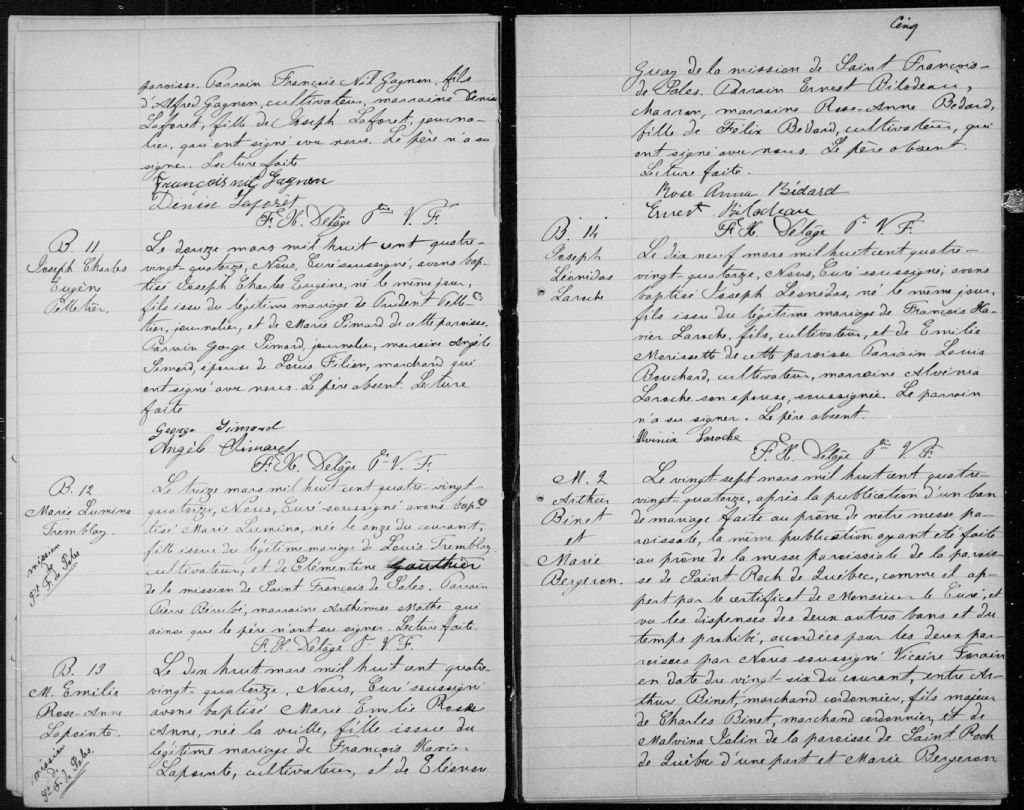 paroisse. Parrain François Nil Gagnon, fils
d'Alfred Gagnon, cultivateur, marraine Denise
Laforet, fille de Joseph Laforet, journa-
lier, qui ont signé avec nous. Le père n'a su
signer. Lecture faite
François nil Gagnon
Denise Laforêt
F. X. Delâge Ptre V. F.
B. 11
Joseph Charles
Eugène
Pelletier.
Le douze mars mil huit cent quatre-
vingt-quatorze, Nous, Curé soussigné, avons bap-
tisé Joseph Charles Eugène, né le même jour,
fils issu du légitime mariage de Prudent Pelle-
tier, journalier, et de Marie Simard de cette paroisse.
Parrain George Simard, journalier, marraine Angèle
Simard, épouse de Louis Filion, marchand qui
ont signé avec nous. Le père absent. Lecture
faite
George Simard
Angèle Simard
F. X. Delâge Ptre V. F.
B. 12
Marie Lumina
Tremblay.
mission
de
St. F. de Sales
Le treize mars mil huit cent quatre-vingt-
quatorze, Nous, Curé soussigné avons bap-
tisé Marie Lumina, née le onze du courant,
fille issue du légitime mariage de Louis Tremblay
cultivateur, et de Clémentine Gauthier
de la mission de Saint François de Sales. Parrain
Pierre Bérubé, marraine Arthémise Mathé qui
ainsi que le père n'ont su signer. Lecture faite.
F. X. Delâge Ptre V. F.
B. 13
M. Emilie
Rose-Anne
Lapointe.
mission
de
St. F. de Sales.
Le dix huit mars mil huit cent quatre-
vingt-quatorze, Nous, Curé soussigné
avons baptisé Marie Emilie Rose
Anne, née la veille, fille issue du
légitime mariage de François Xavier
Lapointe, cultivateur, et de Eléonor
Cinq
Guay de la mission de Saint François-
de Sales. Parrain Ernest Bilodeau,
charron, marraine Rose-Anne Bedard,
fille de Félix Bedard, cultivateur, qui
ont signé avec nous. Le père absent.
Lecture faite.
Rose Anna Bédard
Ernest Bilodeau
F. X. Delâge Ptre V. F.
B. 14
Joseph
Léonidas
Laroche
Le dix neuf mars mil huit cent quatre-
vingt-quatorze, Nous, Curé soussigné, avons
baptisé Joseph Leonidas, né le même jour,
fils issu du légitime mariage de François Xa-
vier Laroche, fils, cultivateur, et de Emilie
Morissette de cette paroisse Parrain Louis
Bouchard, cultivateur, marraine Alvinia
Laroche son épouse, soussignée. Le parrain
n'a su signer. Le père absent.
Alvinia Laroche
F. X. Delâge Ptre V. F.
M. 2
Arthur
Binet
et
Marie
Bergeron.
Le vingt sept mars mil huit cent quatre-
vingt-quatorze, après la publication d'un ban
de mariage faite au prône de notre messe pa-
roissiale, la même publication ayant été faite
au prône de la messe paroissiale de la parois-
se de Saint Roch de Québec, comme il ap-
pert par le certificat de Monsieur le Curé, et
vu les dispenses des deux autres bans et du
temps prohibé, accordées pour les deux pa-
roisses par Nous soussigné Vicaire Forain
en date du vingt six du courant, entre Ar-
thur Binet, marchand cordonnier, fils majeur
de Charles Binet, marchand cordonnier, et de
Malvina Jalin de la paroisse de Saint Roch
de Québec d'une part et Marie Bergeron